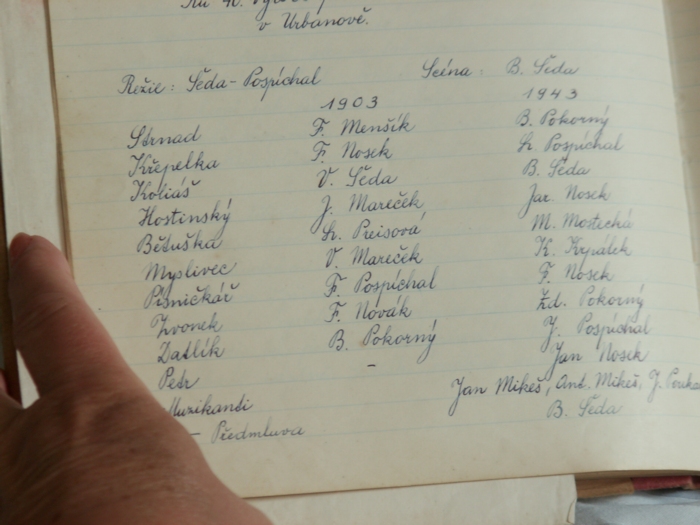 v Urbánově.
Režie: Šéda-Pospíchal Scéna: B. Šéda
1903 1943
Strnad F. Menšík B. Pokorný
Křepelka F. Nosek L. Pospíchal
Koliáš V. Šéda B. Šéda
Hostinský J. Mareček Jar. Nosek
Bětuška L. Preisová M. Mostecká
Myslivec V. Mareček K. Krpálek
Písničkář F. Pospíchal F. Nosek
Zvonek F. Novák Zd. Pokorný
Datlík B. Pokorný J. Pospíchal
Petr - Jan Nosek
Muzikanti Jan Mikeš, Ant. Mikeš, J.
- Předmluva B. Šéda